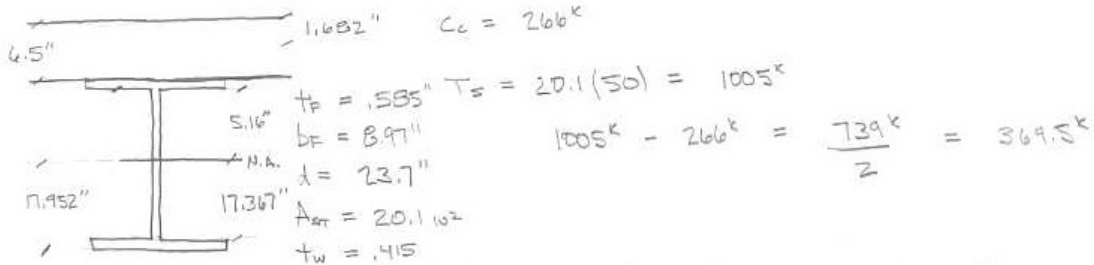 1.682" Cc = 266ᵏ
6.5"
tF = .585" Ts = 20.1(50) = 1005ᵏ
5.16"
bF = 8.97" 1005ᵏ - 266ᵏ = 739ᵏ / 2 = 369.5ᵏ
N.A.
d = 23.7"
17.952" 17.367"
AST = 20.1 in²
tw = .415